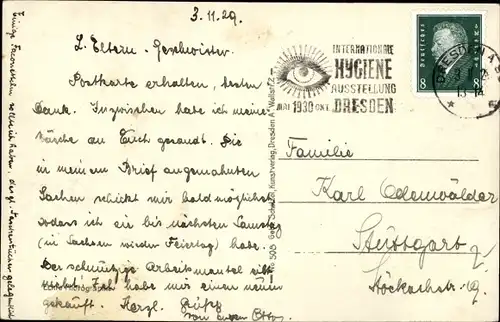 3.11.29.
L. Eltern. Geschwister.
Postkarte erhalten, besten
Dank. Inzwischen habe ich meine
Wäsche an Euch gesandt. Die
in meinem Brief angemahnten
Sachen schickt mir bald möglichst
sodass ich sie bis nächsten Samstag
(in Sachsen wieder Feiertag) habe.
Der schmutzige Arbeitsmantel eilt
nicht. Ich habe mir einen neuen
gekauft. Herzl. Grüße
von eurem Otto.
INTERNATIONALE
HYGIENE
AUSSTELLUNG
MAI 1930 OKT. DRESDEN
Deutsches Reich
8 8
DRESDEN A
Familie
Karl Odenwälder
Stuttgart
Stöckachstr.